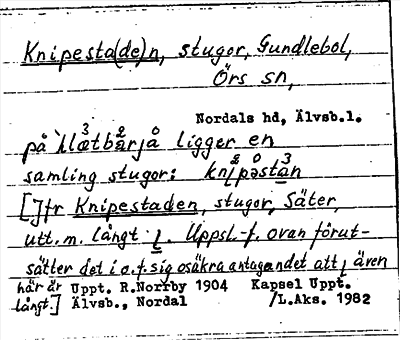 Knipesta(de)n, stugor, Gundlebol,
Örs sn,
Nordals hd, Älvsb.l.
på ligger en
samling stugor:
[Jfr Knipestaden, stugor, Säter,
utt. m. långt i. Uppsl.-f. ovan förut-
sätter det i o. f. sig osäkra antagandet att i även
här är Uppt. R.Norrby 1904 Kapsel Uppt.
långt.] Älvsb., Nordal /L.Aks. 1982